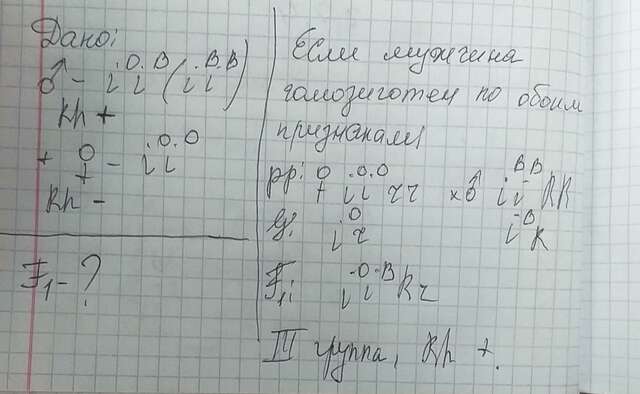 Дано:
♂ - i^O i^B (i^B i^B)
Rh +
+ ♀ - i^O i^O
Rh -
F₁ - ?
Если мужчина
гомозиготен по обоим
признакам
pp: ♀ i^O i^O rr × ♂ i^B i^B RR
g: i^O r i^B R
F₁: i^O i^B Rr
III группа, Rh +.